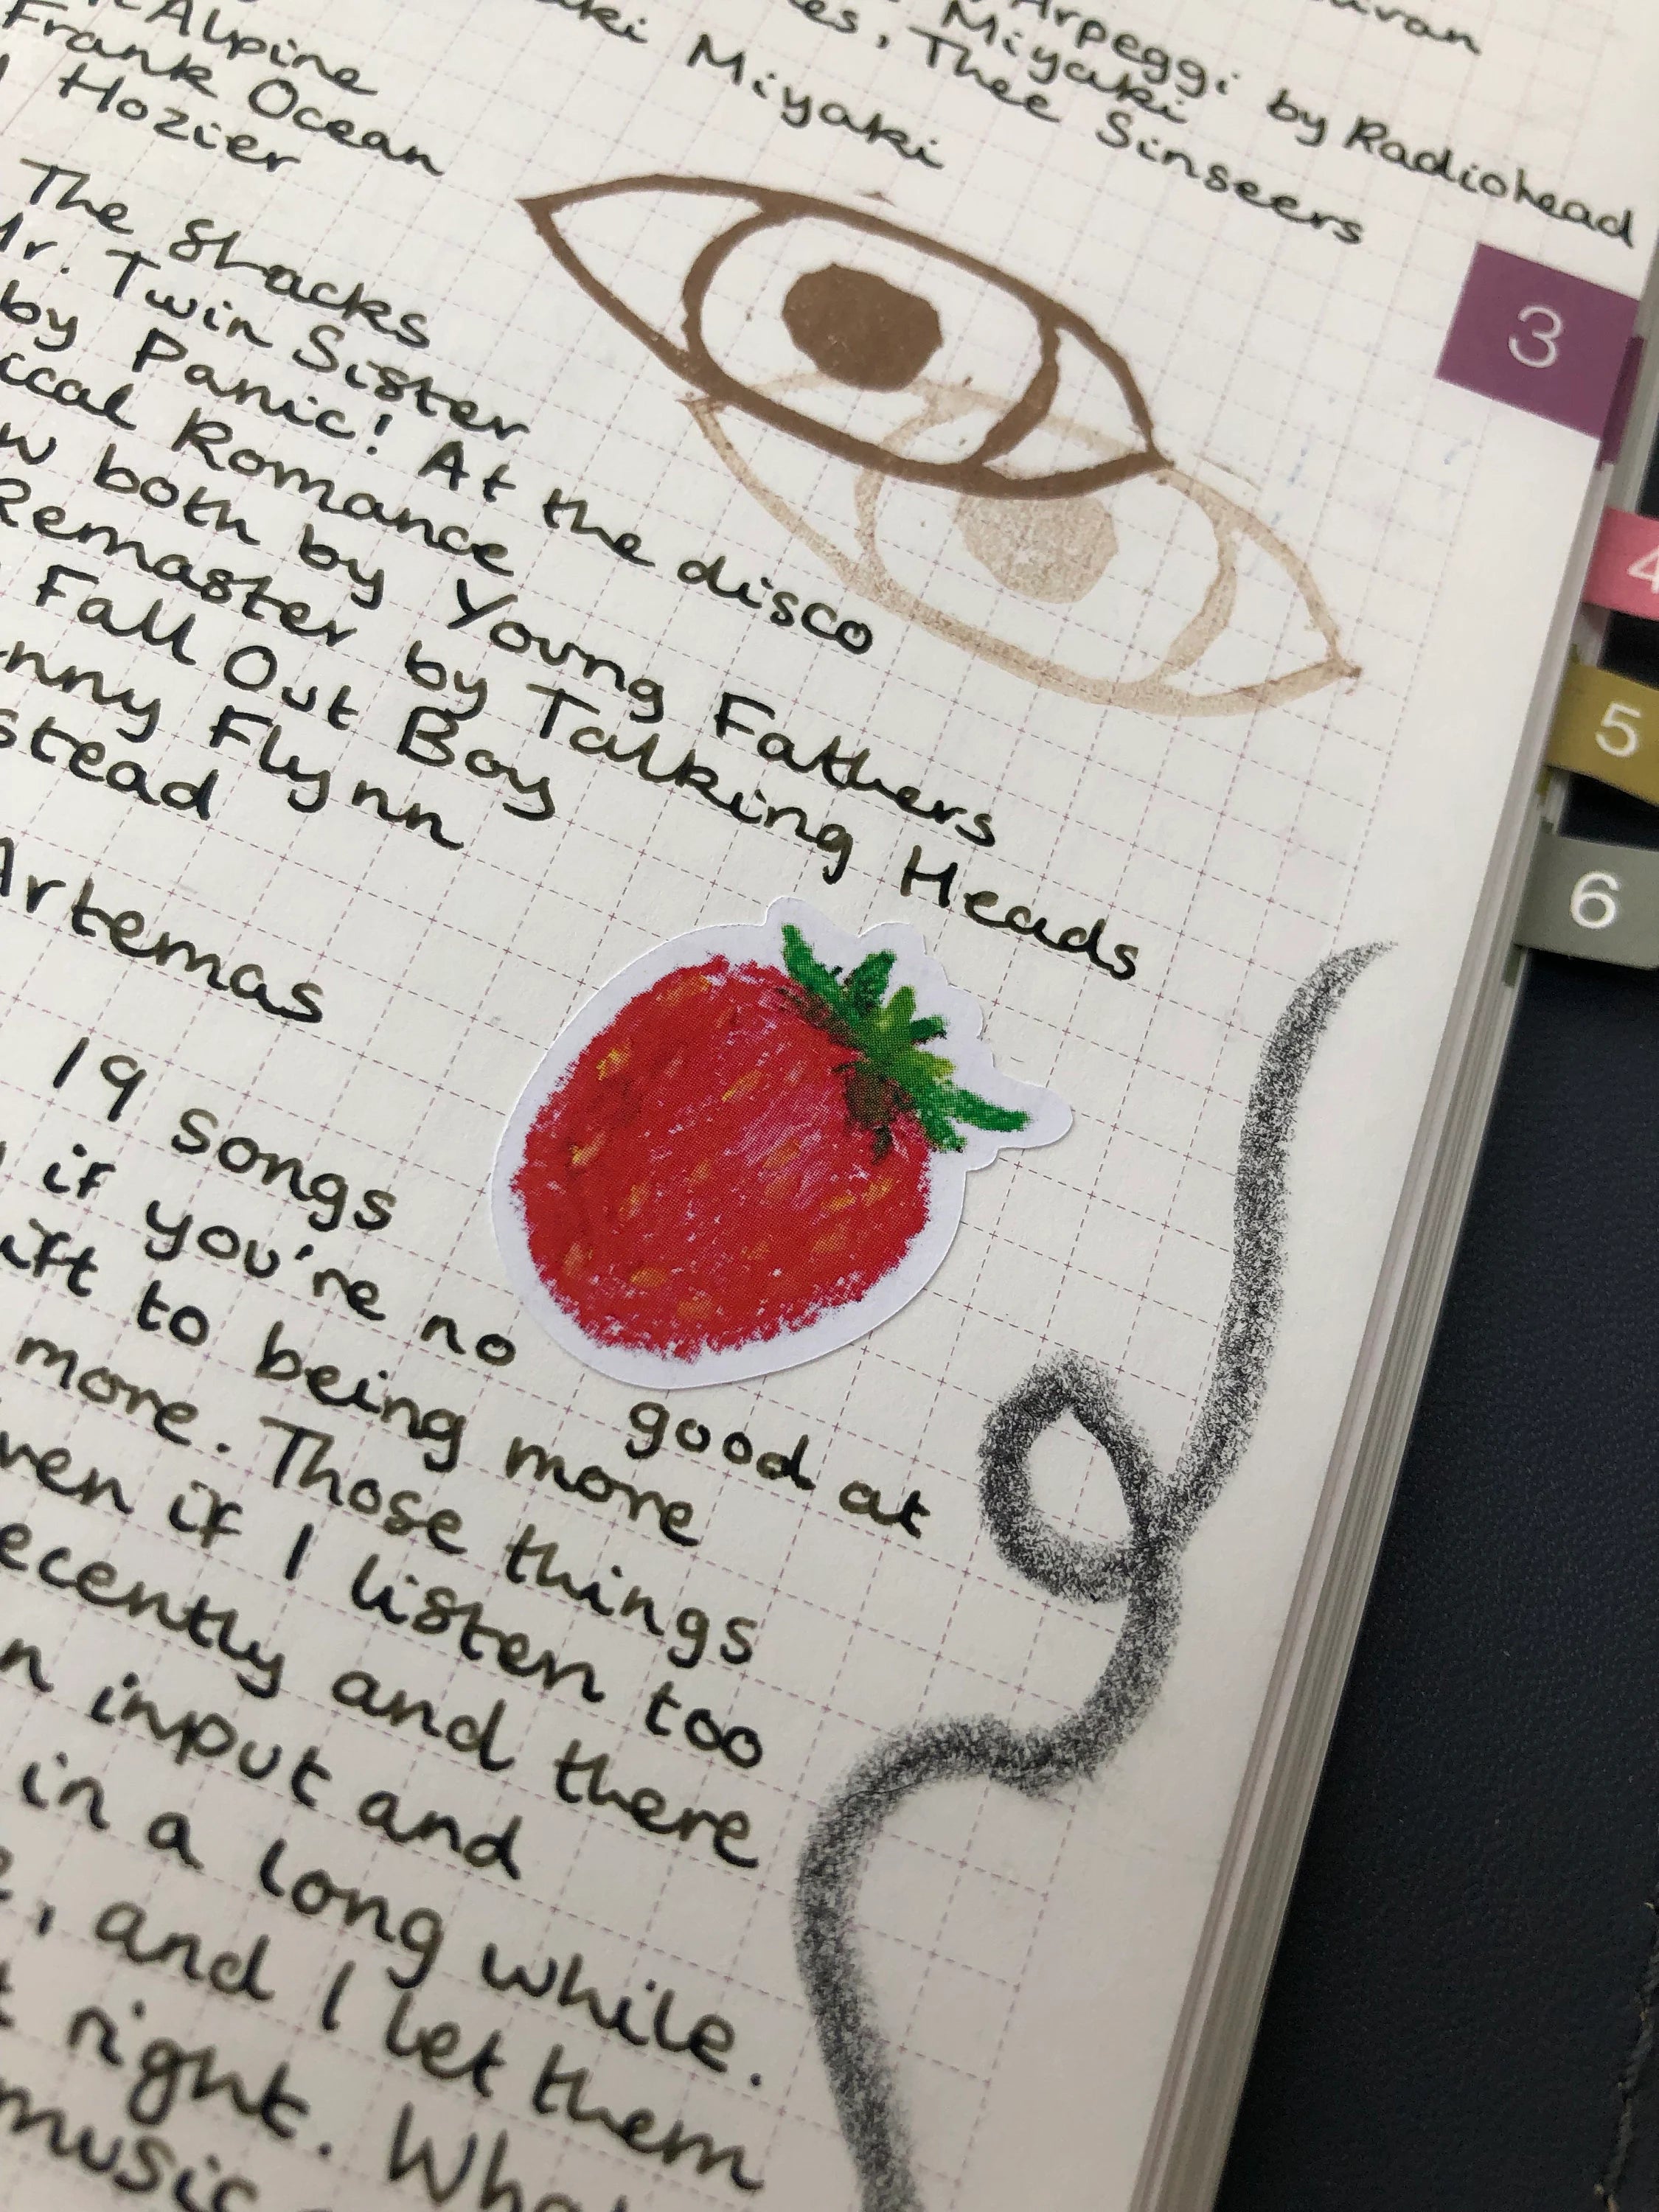 Arpeggi by Radiohead
Miyaki
Alpine
Miyaki
, Thee Sinseers
Frank Ocean
Hozier
The Shacks
Mr. Twin Sister
by Panic! At the disco
Romance
both by Young Fathers
Remaster by Talking Heads
Fall Out Boy
Flynn
Artemas
19 songs
if you're no good at
to being more
more. Those things
if I listen too
and there
input and
in a long while.
, and I let them
right.
music
3
4
5
6